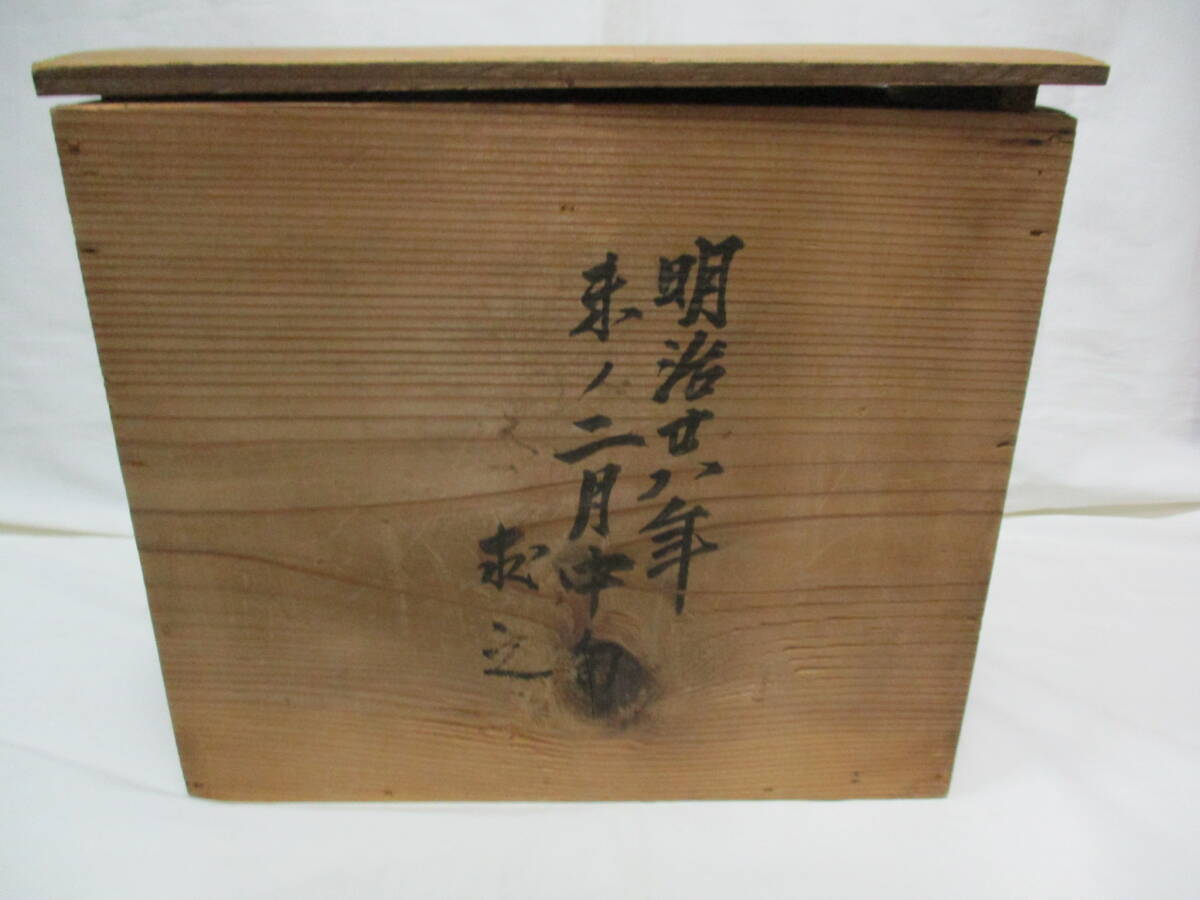 明治廿八年
未ノ二月中旬
求之